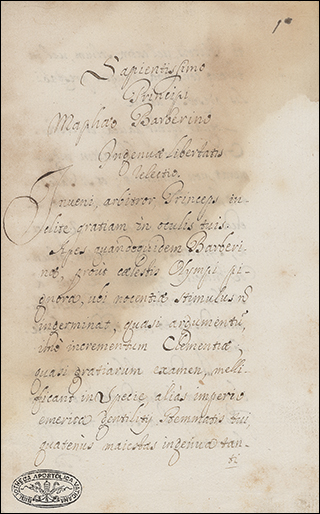 1
Sapientissimo
Principi
Maphæo Barberino
Ingenuæ libertatis
Selectio.
Inveni, arbitror Princeps in-
clite gratiam in oculis tuis.
Apes quandoquidem Barberi-
næ, prout cælestis Olympi pi-
gnora, ubi nocuntiæ stimulus ñ
ingerminat, quasi argumentũ,
incrementum Clementiæ
quasi gratiarum examen, melli-
ficant in Specie, alias imperio
emerita Gentilitij Stemmatis tui
quatenus maiestas ingenua tan-
ti
APOSTOLICA VATICANA